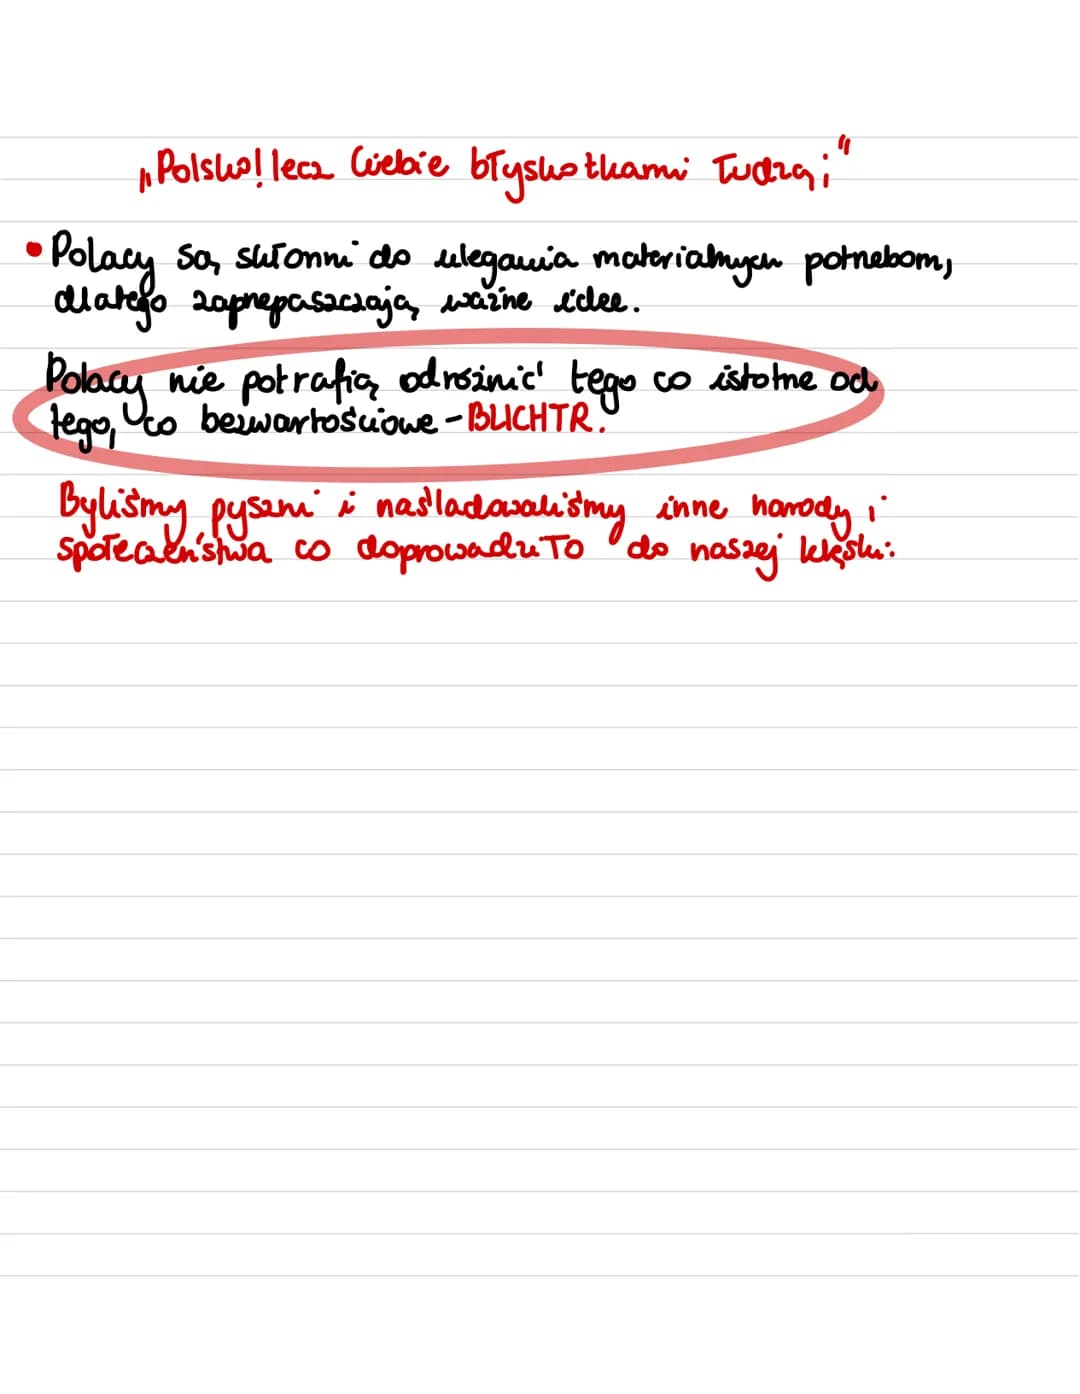 „Polsko! lecz Ciebie błyskotkami łudzą;"
• Polacy są skłonni do ulegania materialnych potrzebom,
dlatego zaprzepaszczają ważne idee.
Polacy nie potrafią odróżnić tego co istotne od
tego, co bezwartościowe - BLICHTR.
Byliśmy pyszni i naśladowaliśmy inne narody i
społeczeństwa co doprowadziło do naszej klęski.